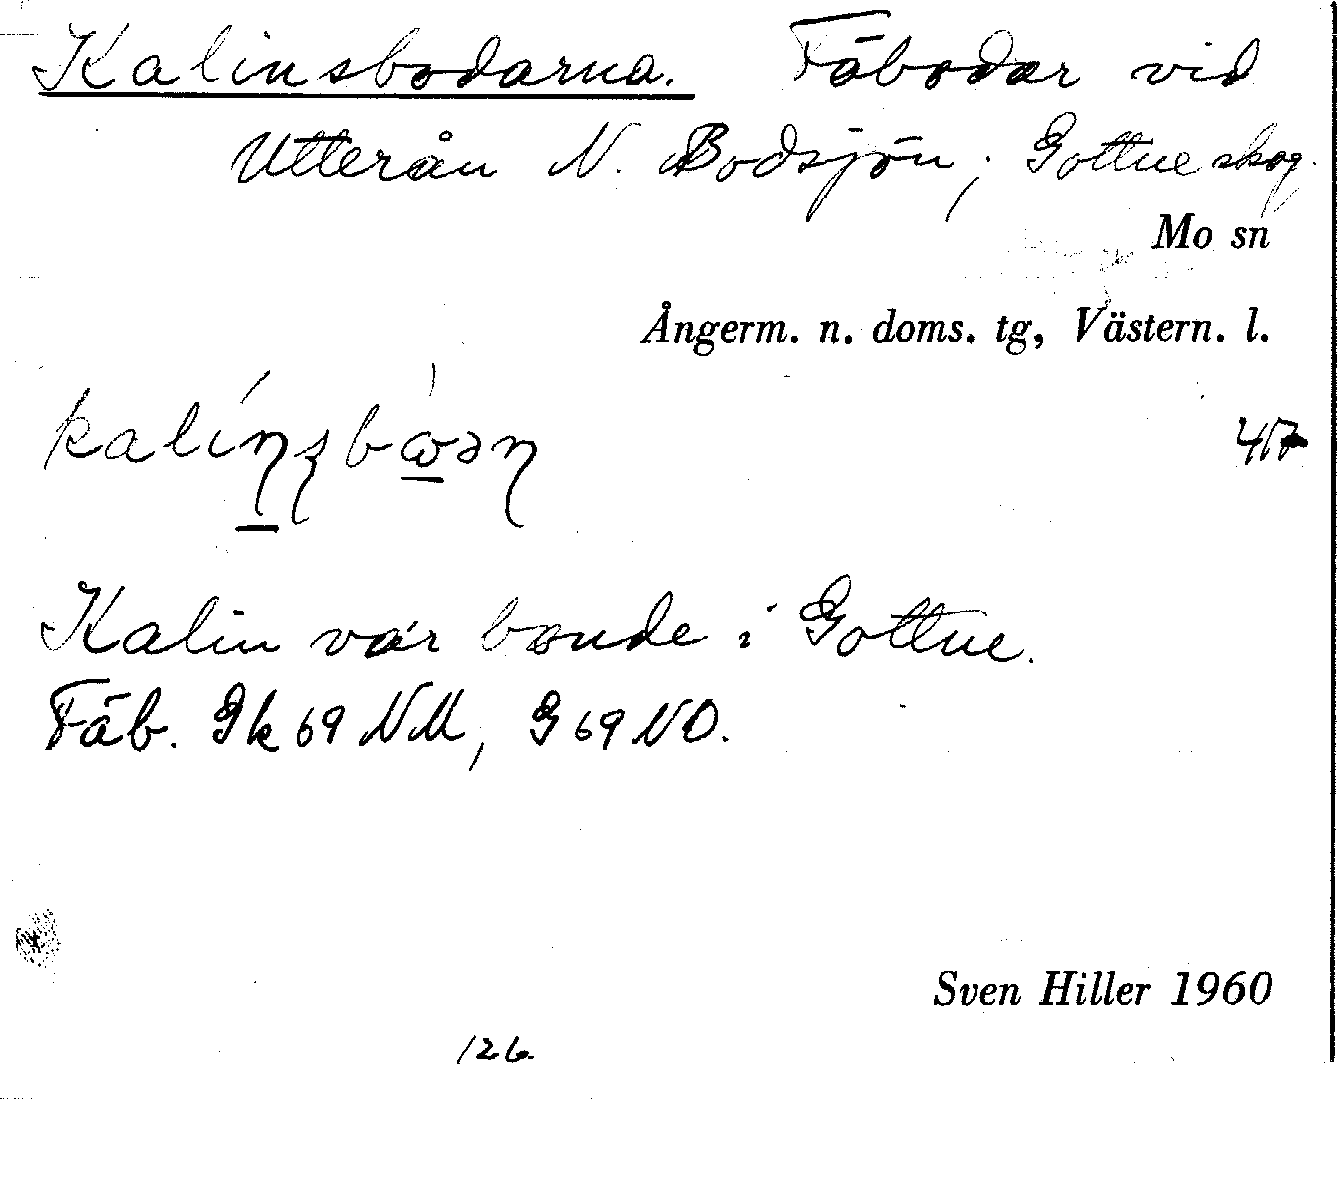 Kalinsbodarna. Fäbodar vid
Utterån N. Bodsjön; Gottne skog.
Mo sn
Ångerm. n. doms. tg, Västern. l.
Kalin var bonde i Gottne.
Fäb. Gk 69 NM, G 69 NO.
Sven Hiller 1960
126.